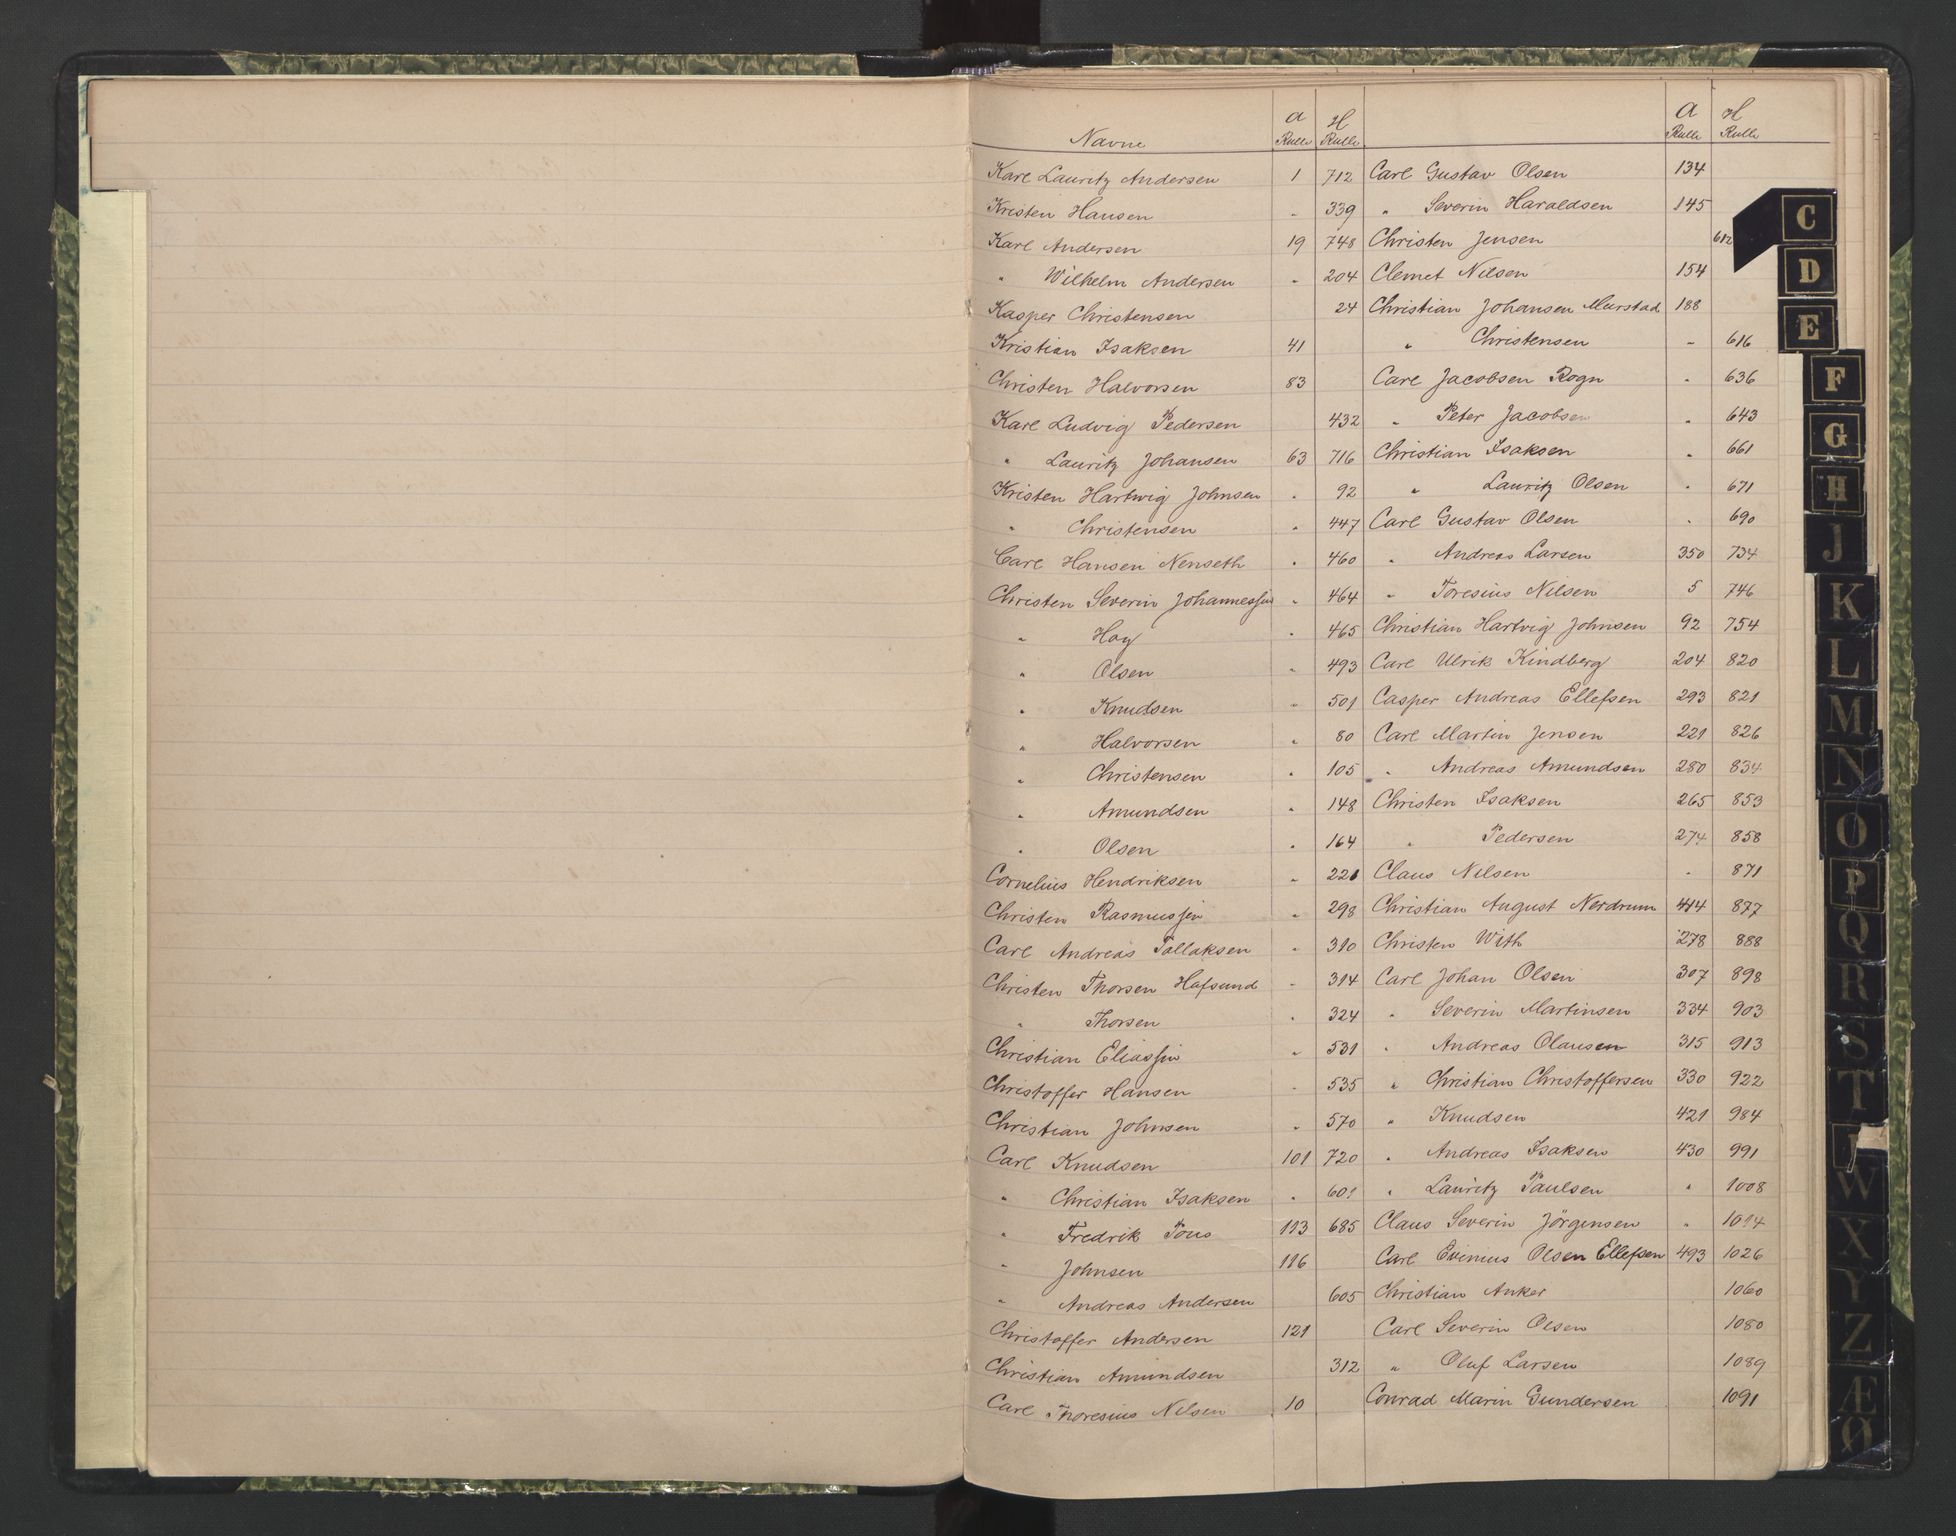 Navne a Rulle H Rulle
Karl Lauritz Andersen 1 712
Kristen Hansen " 339
Karl Andersen 19 748
" Wilhelm Andersen " 204
Kasper Christensen 24
Kristian Isaksen 41
Christen Halvorsen 83
Karl Ludvig Pedersen 432
" Lauritz Johansen 63 716
Kristen Hartwig Johnsen " 92
" Christensen " 447
Carl Hansen Nenseth " 460
Christen Severin Johannessen " 464
" Hoy " 465
" Olsen " 493
" Knudsen " 501
" Halvorsen " 80
" Christensen " 105
" Amundsen " 148
" Olsen " 164
Cornelius Hendriksen " 221
Christen Rasmussen " 298
Carl Andreas Tallaksen " 310
Christen Thorsen Hafsund " 314
" Thorsen " 324
Christian Eliassen " 531
Christoffer Hansen " 535
Christian Johnsen " 570
Carl Knudsen 101 720
" Christian Isaksen " 601
" Fredrik Pous 113 685
" Johnsen 116
" Andreas Andersen 605
Christoffer Andersen 121
Christian Amundsen 312
Carl Thoresius Nilsen 10
a Rulle H Rulle
Carl Gustav Olsen 134
" Severin Haraldsen 145
Christen Jensen 612
Clemet Nilsen 154
Christian Johansen Murstad 188
" Christensen " 616
Carl Jacobsen Rogn " 636
" Peter Jacobsen " 643
Christian Isaksen " 661
" Lauritz Olsen " 671
Carl Gustav Olsen " 690
" Andreas Larsen 350 734
" Toresius Nilsen 5 746
Christian Hartvig Johnsen 92 754
Carl Ulrik Kindberg 204 820
Casper Andreas Ellefsen 293 821
Carl Martin Jensen 221 826
" Andreas Amundsen 280 834
Christen Isaksen 265 853
" Pedersen 274 858
Claus Nilsen " 871
Christian August Nerdrum 414 877
Christen With 278 888
Carl Johan Olsen 307 898
" Severin Martinsen 334 903
" Andreas Olausen 315 913
" Christian Christoffersen 330 922
" Knudsen 421 984
" Andreas Isaksen 430 991
" Lauritz Paulsen " 1008
Claus Severin Jörgensen " 1014
Carl Evinius Olsen Ellefsen 493 1026
Christian Anker 1060
Carl Severin Olsen 1080
" Oluf Larsen 1089
Conrad Marin Gundersen 1091
C
D
E
F
G
H
J
K
L
M
N
O
P
Q
R
S
T
W
X
Y
Z
Æ
Ø